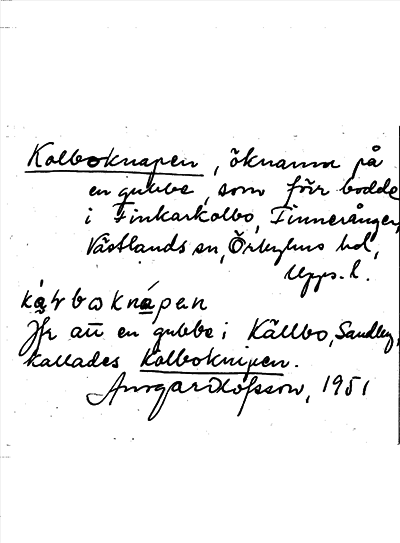 Kolboknapen, öknamn på
en gubbe, som förr bodde
i Finkarkolbo, Finnerånger,
Västlands sn, Örbyhus hd,
Upps. l.
Jfr att en gubbe i Källbo, Sandby,
kallades Kolboknipen.
Olofsson, 1951